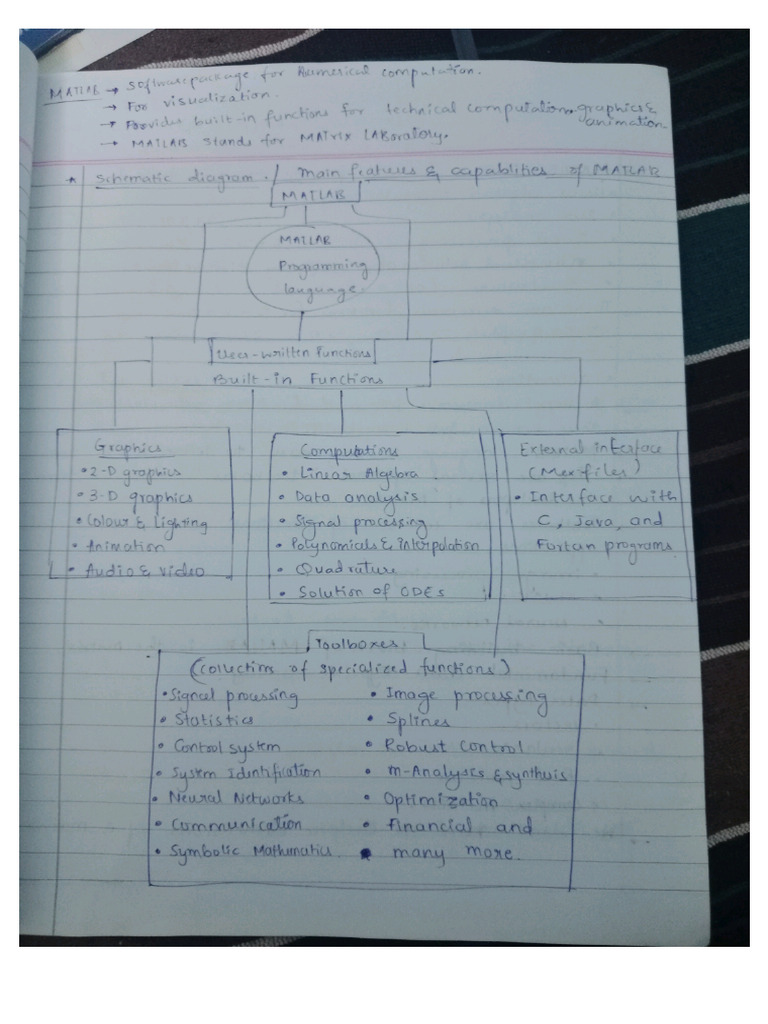 MATLAB → Software package for Numerical computation.
→ For visualization.
→ Provides built-in functions for technical computation, graphics &
animation.
→ MATLAB stands for MATrix LABoratory.
* Schematic diagram / main features & capablities of MATLAB
MATLAB
MATLAB
Programming
language
User-written Functions
Built-in Functions
Graphics
• 2-D graphics
• 3-D graphics
• Colour & Lighting
• Animation
• Audio & video
Computations
• Linear Algebra
• Data analysis
• Signal processing
• Polynomials & interpolation
• Quadrature
• Solution of ODEs
External interface
(Mex files)
• Interface with
C, Java, and
Fortan programs
Toolboxes
(collections of specialized functions)
• Signal processing
• Statistics
• Control system
• System Identification
• Neural Networks
• Communication
• Symbolic Mathematics
• Image processing
• Splines
• Robust Control
• m-Analyses & synthuis
• Optimization
• financial and
• many more.